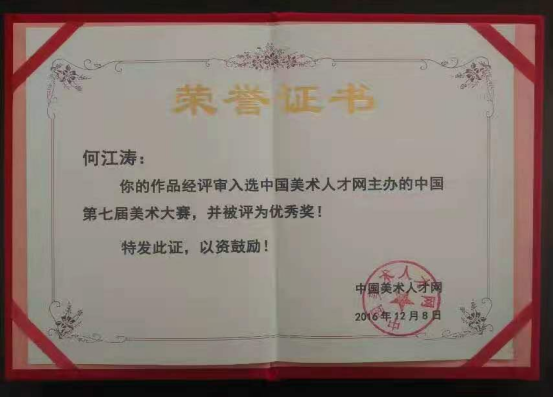 荣誉证书
何江涛：
你的作品经评审入选中国美术人才网主办的中国
第七届美术大赛，并被评为优秀奖！
特发此证，以资鼓励！
中国美术人才网
2016年12月8日
中国美术人才网